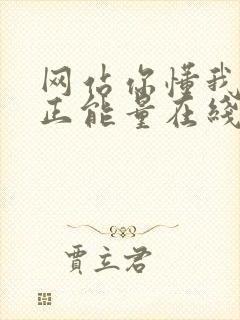 网站你懂我
正能量在线
贾立君